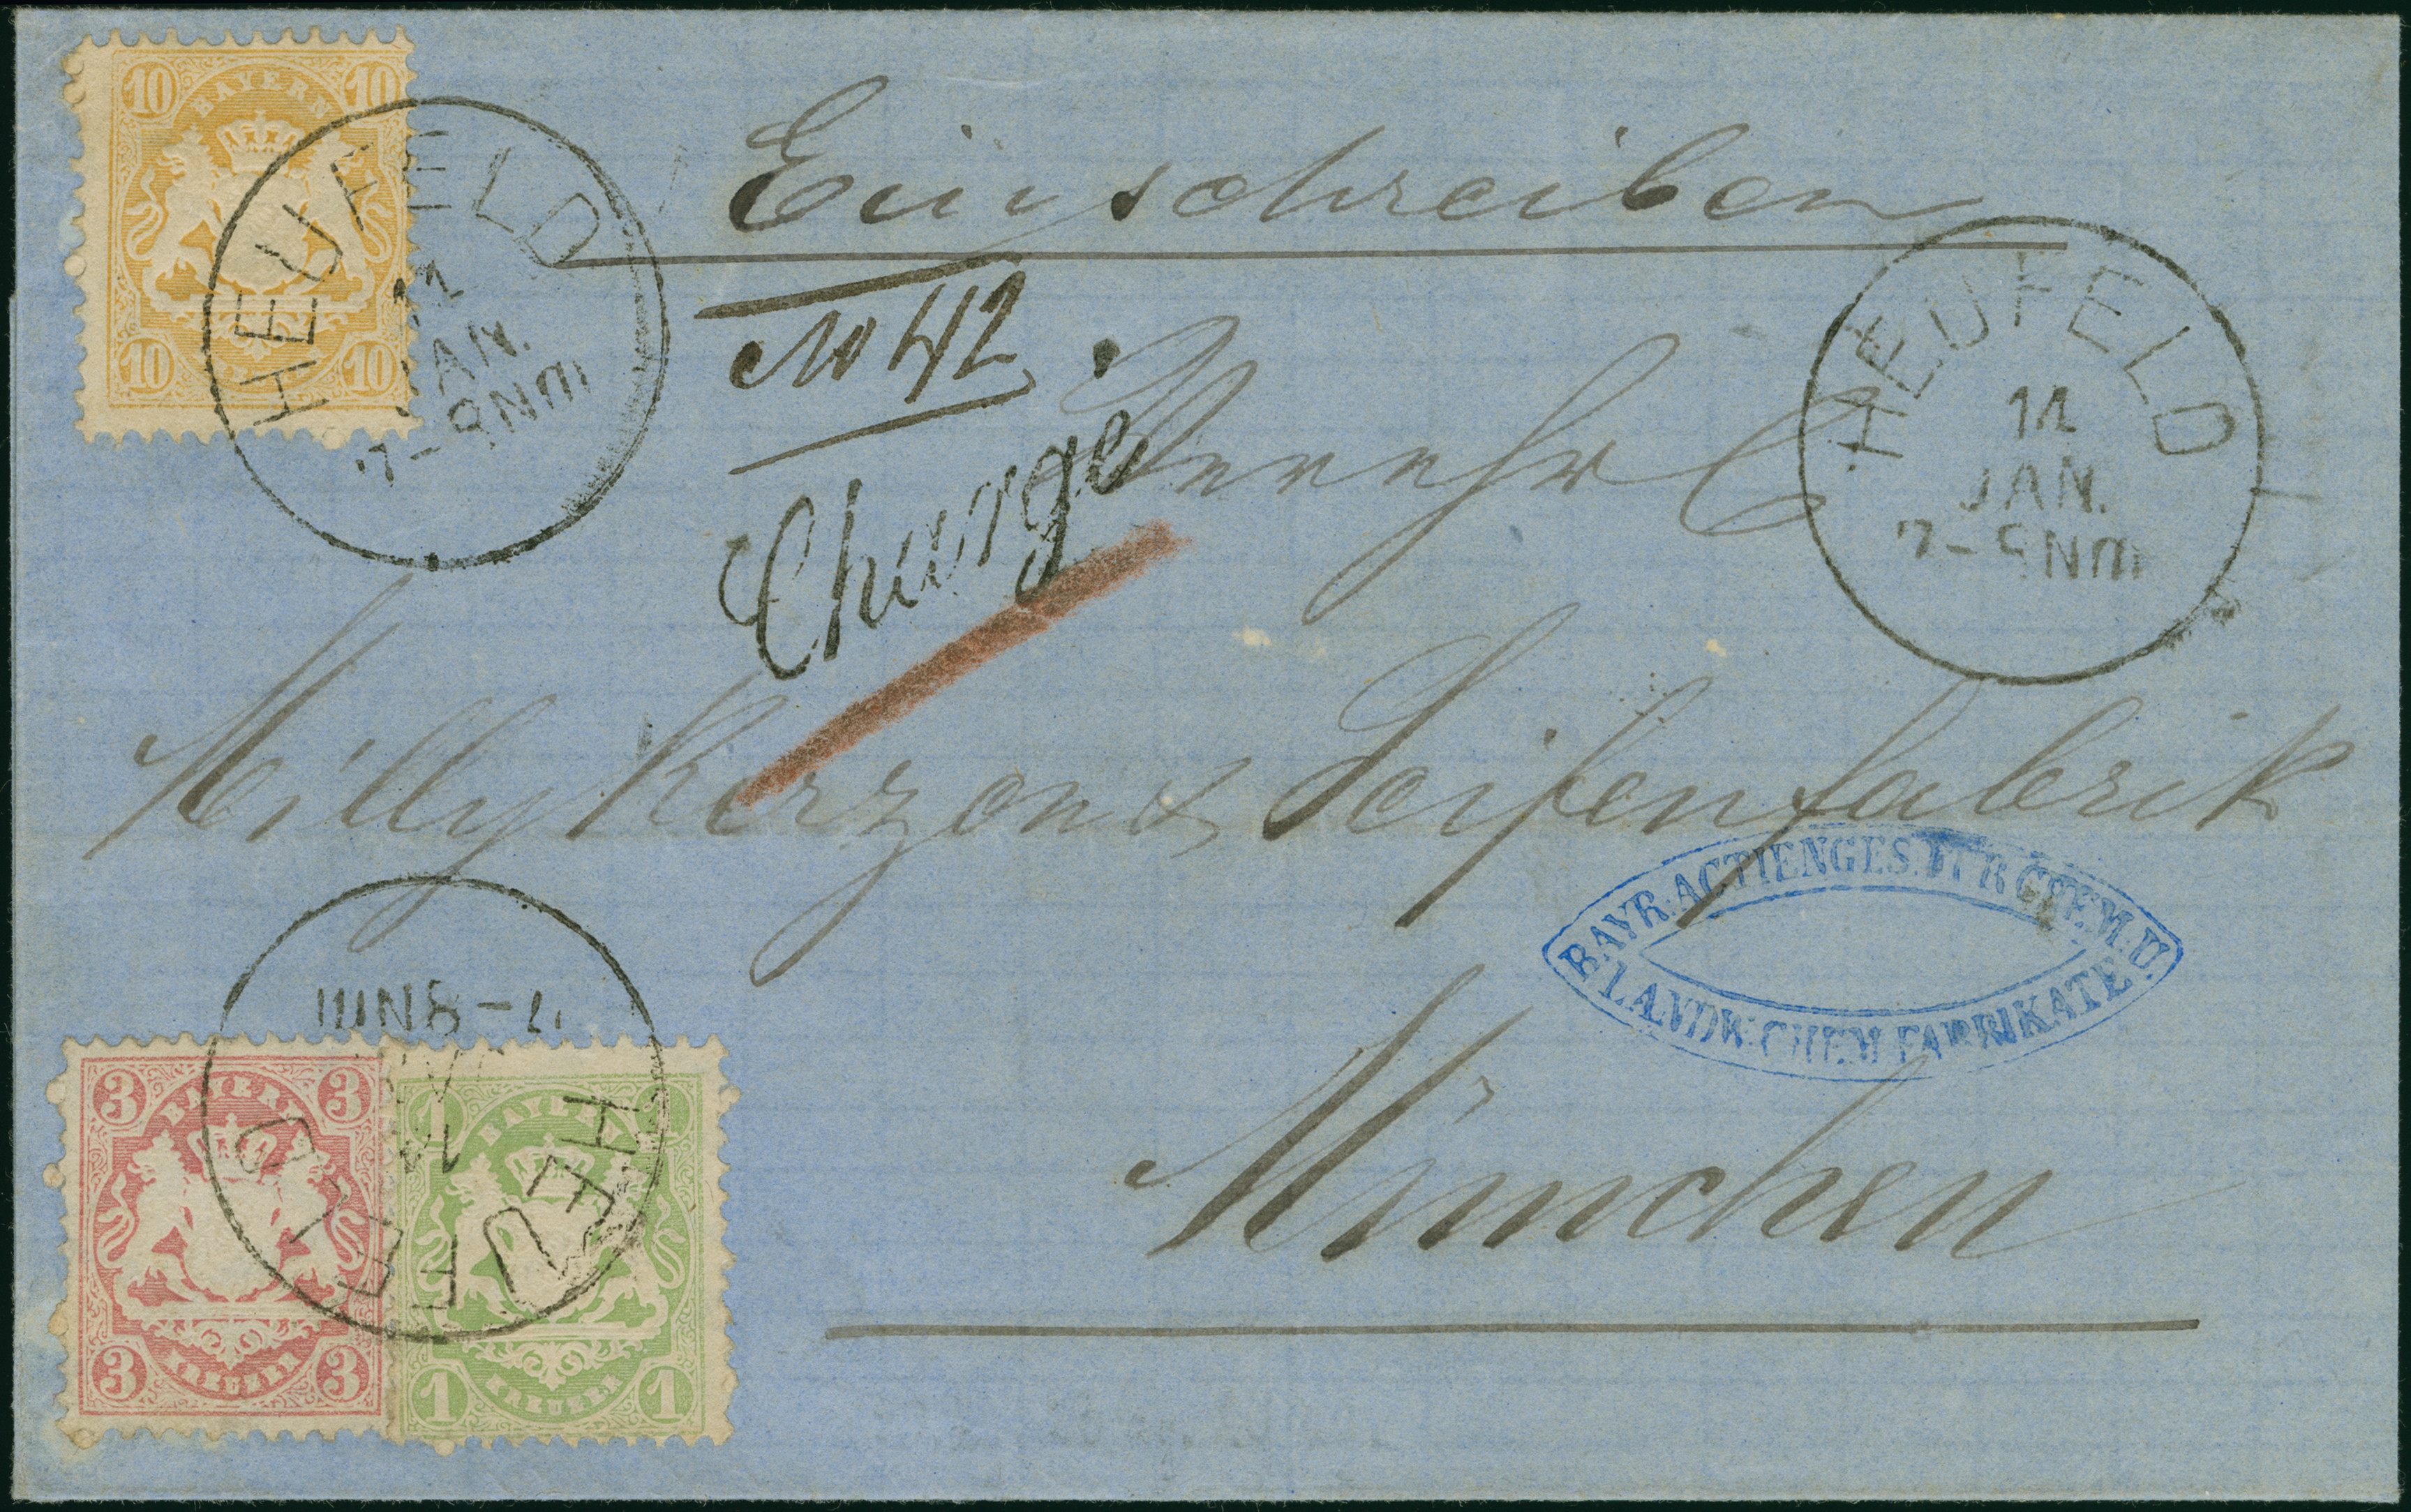 10 10
BAYERN
10 10
HEUFELD
JAN.
7-8NM
Einschreiben
No 42
Chargé
HEUFELD
JAN.
7-8NM
Verehrl
Milly Kerzen & Seifenfabrik
München
BAYR. ACTIENGES. DER CHEM. U.
LANDW. CHEM. FABRIKATE
HEUFELD
7-8NM
3 3
BAYERN
3 3
KREUZER
1 1
BAYERN
1 1
KREUZER